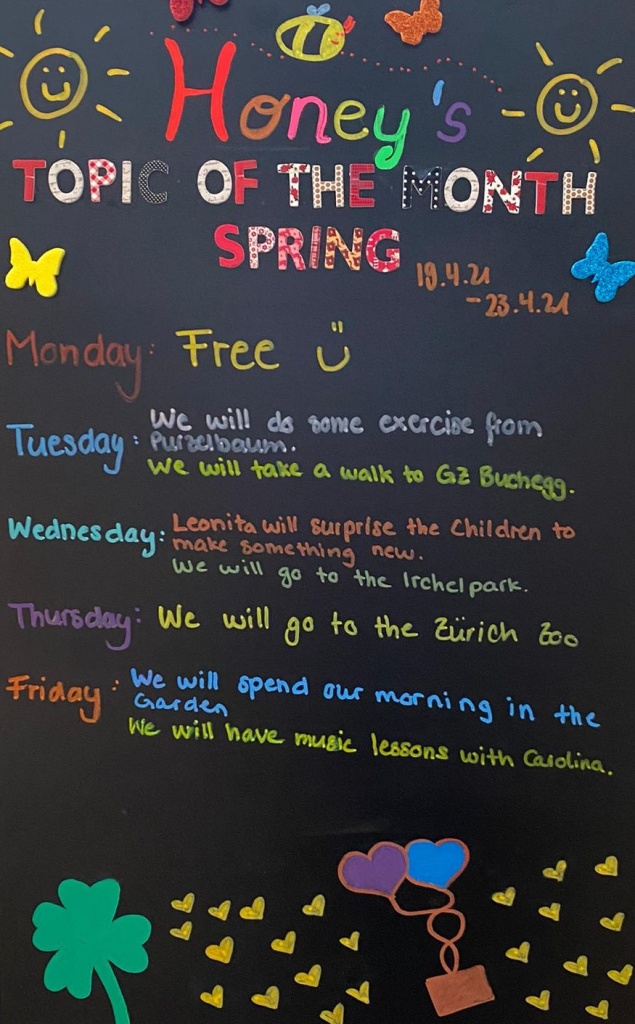 Honey's
TOPIC OF THE MONTH
SPRING
19.4.21
-23.4.21
Monday: Free
Tuesday: We will do some exercise from
Purzelbaum.
We will take a walk to GZ Buchegg.
Wednesday: Leonita will surprise the Children to
make something new.
We will go to the Irchelpark.
Thursday: We will go to the Zürich Zoo
Friday: We will spend our morning in the
Garden
We will have music lessons with Carolina.